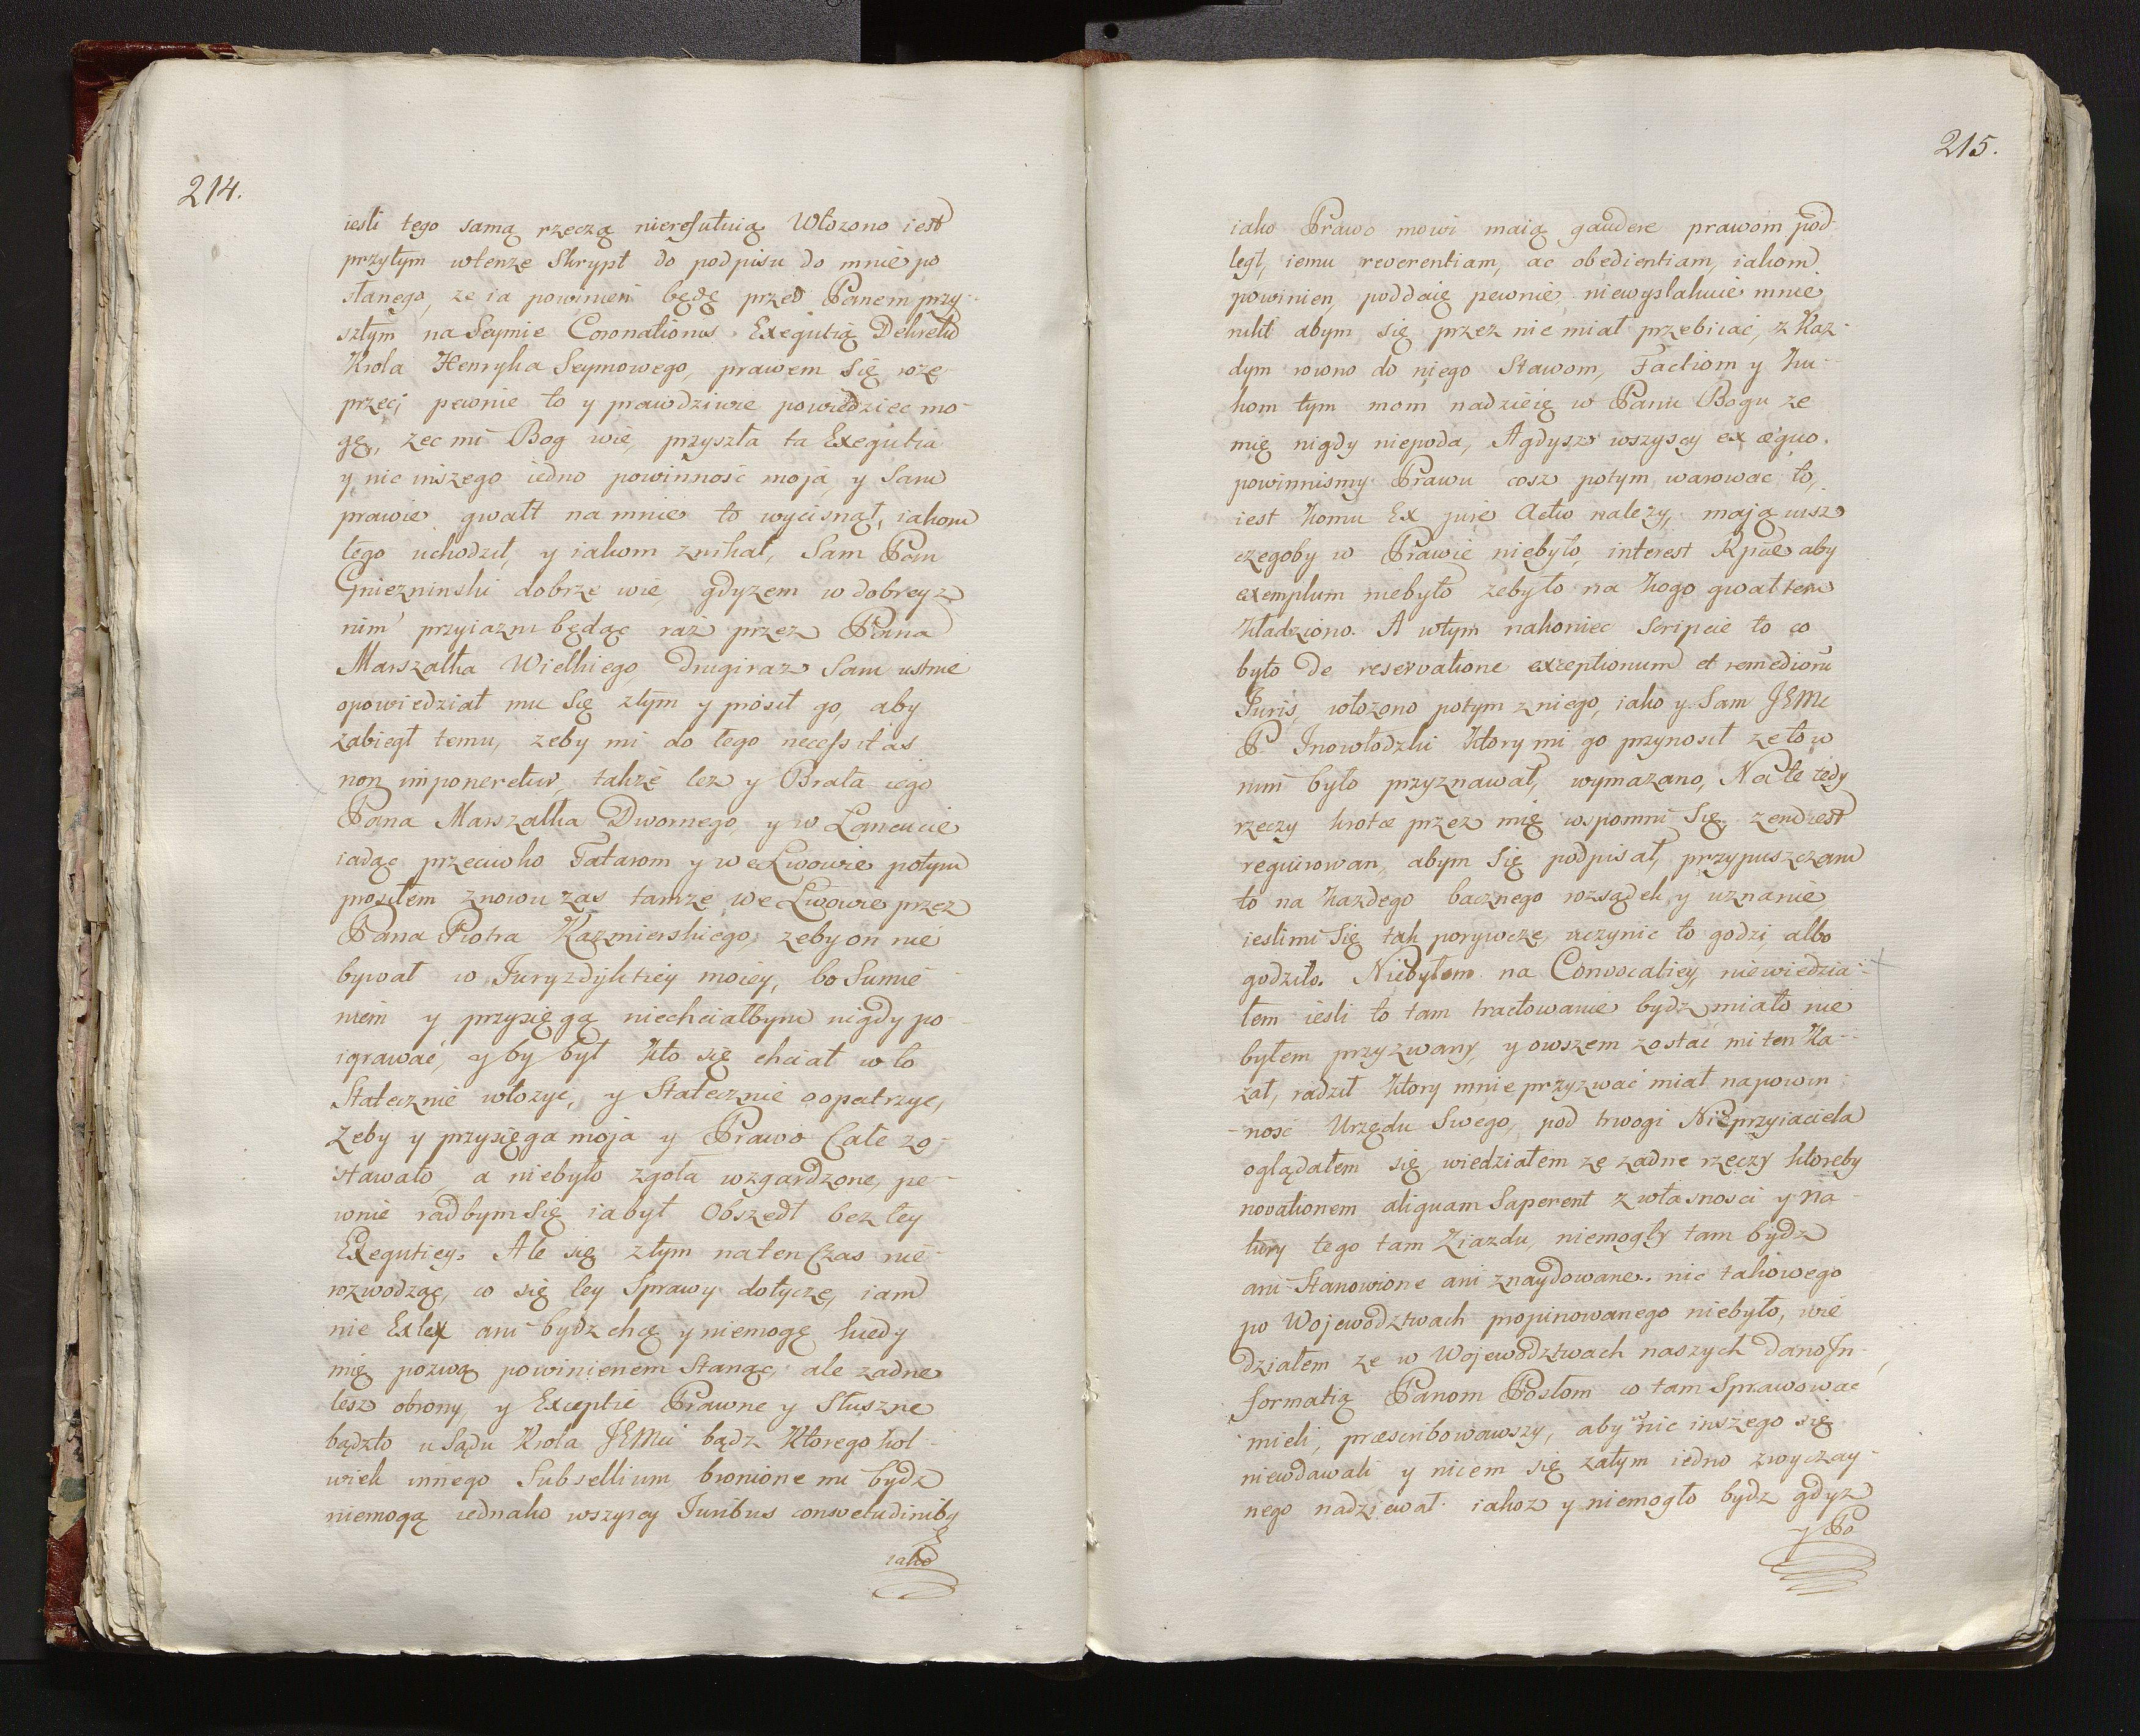 214.
iesli tego samą rzeczą nierefutuią. Włozono iest
przytym wtenze Skrypt do podpisu do mnie po
słanego, ze ia powinien będę przed Panem przy-
szłym na Seymie Coronationis Exequtią Dekretu
Krola Henryka Seymowego, prawem się roze
przeć; pewnie to y prawdziwie powiedziec mo-
gę, zec mi Bog wie, przyszła ta Exequtia
y nic inszego iedno powinność moja, y Sam
prawie gwałt na mnie to wycisnął, iakom
tego uchodził, y iakom znikał, Sam Pan
Gniezninski dobrze wie, gdyzem w dobrey z
nim przyiazni będąc raz przez Pana
Marszałka Wielkiego, drugi raz Sam ustnie
opowiedział mu Się ztym y prosił go, aby
zabiegł temu, zeby mi do tego necessitas
non imponeretur, takze tez y Brata iego
Pana Marszałka Dwornego, y w Lancucie
iadąc przeciwko Tatarom y we Lwowie potym
prosiłem znowu zas tamze we Lwowie przez
Pana Piotra Kazmierskiego, zeby on nie
bywał w Juryzdyktiey moiey, bo Sumie-
niem y przysięgą niechciałbym nigdy po-
igrawać, y by był kto się chciał w to
Statecznie włozyć, y Statecznie oopatrzyć,
Zeby y przysięga moja y Prawo Całe zo-
stawało, a niebyło zgoła wzgardzone, pe-
wnie radbym Się ia był Obszedł bez tey
Exequtiey. Ale się ztym na ten Czas nie
rozwodząc, co się tey Sprawy dotycze, iam
nie Exlex ani bydz chcę y niemogę kiedy
mię pozwą powinienem Stanąc, ale zadne
tesz obrony, y Exceptie Prawne y Słuszne
bądzto u Sądu Krola JEMci bądz Ktorego kol-
wiek innego Subsellium bronione mi bydz
niemogą iednako wszyscy Juribus consvetudiniby
iako
215.
iako Prawo mowi maią gaudere prawom pod-
legł, iemu reverentiam, ac obedientiam, iakom
powinien, poddaię pewnie, niewystakuie mnie
nikt abym się przez nie miał przebiiać, z Kaz-
dym rowno do niego Stawom, Factiom y
kom tym mom nadzieię w Panu Bogu ze
mię nigdy niepoda, A gdysz wszyscy ex æquo
powinnismy Prawu cosz potym warowac to,
iest komu Ex jure Acto nalezy, mają insz
czegoby w Prawie niebyło, interest Rpcæ aby
exemplum niebyło zebyło na kogo gwałtem
kładziono. A wtym nakoniec Scripcie to co
było De reservatione exceptionum et remediorũ
Juris, włozono potym zniego, iako y Sam JEMc
P. Inowłodzki ktory mi go przynosił ze to w
nim było przyznawał, wymazano, Na te tedy
rzeczy krotce przez mię wspomni Się,
requirowan, abym Się podpisał, przypuszczam
to na kazdego bacznego rozsądek y uznanie
iesli mi Się tak porywcze, uczynic to godzi, albo
godziło. Niebyłem na Convocatiey, niewiedzia-
łem iesli to tam tractowanie bydz miało, nie
byłem przyzwany, y owszem zostać mi ten Ka-
zał, radził ktory mnie przyzwać miał na powin-
ność Urzędu Swego, pod trwogi Nieprzyiaciela
oglądałem się, wiedziałem ze zadne rzeczy ktoreby
novationem aliquam Saperent z własnosci y na-
tury tego tam Ziazdu, niemogły tam bydz
ani Stanowione ani znaydowane. nic takowego
po Wojewodztwach propinowanego niebyło, wie
działem ze w Wojewodztwach naszych dano In-
formatią Panom Posłom co tam Sprawowac
mieli, præscribowawszy, aby nic inszego się
niewdawali y nicem się zatym iedno zwyczay-
nego nadziewał. iakoz y niemogło bydz gdyz
y Po